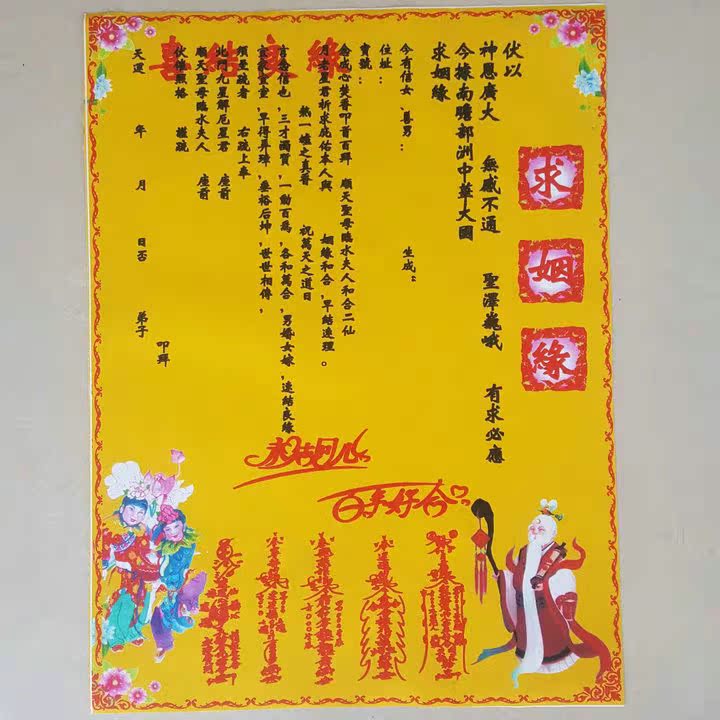 求姻緣
喜結良緣
伏以
神恩廣大 無感不通 聖澤巍峨 有求必應
今據南瞻部洲中華大國
求姻緣
今有信女、善男： 生成：
住址：
寶號：
念成心焚香叩首百拜 順天聖母臨水夫人和合二仙
月老星君祈求庇佑本人與 姻緣和合，早結連理。
熱一爐之真香 祝萬天之道日
言念信也，三才濁質，一動百為，各和萬合，男婚女嫁，速結良緣
宜室宜家，早得弄璋，垂裕后坤，世世相傳，
須至疏者 右疏上奉
北斗九星解厄星君 座前
順天聖母臨水夫人 座前
伏惟照格 謹疏
天運 年 月 日吉 弟子 叩拜
永结同心
百年好合